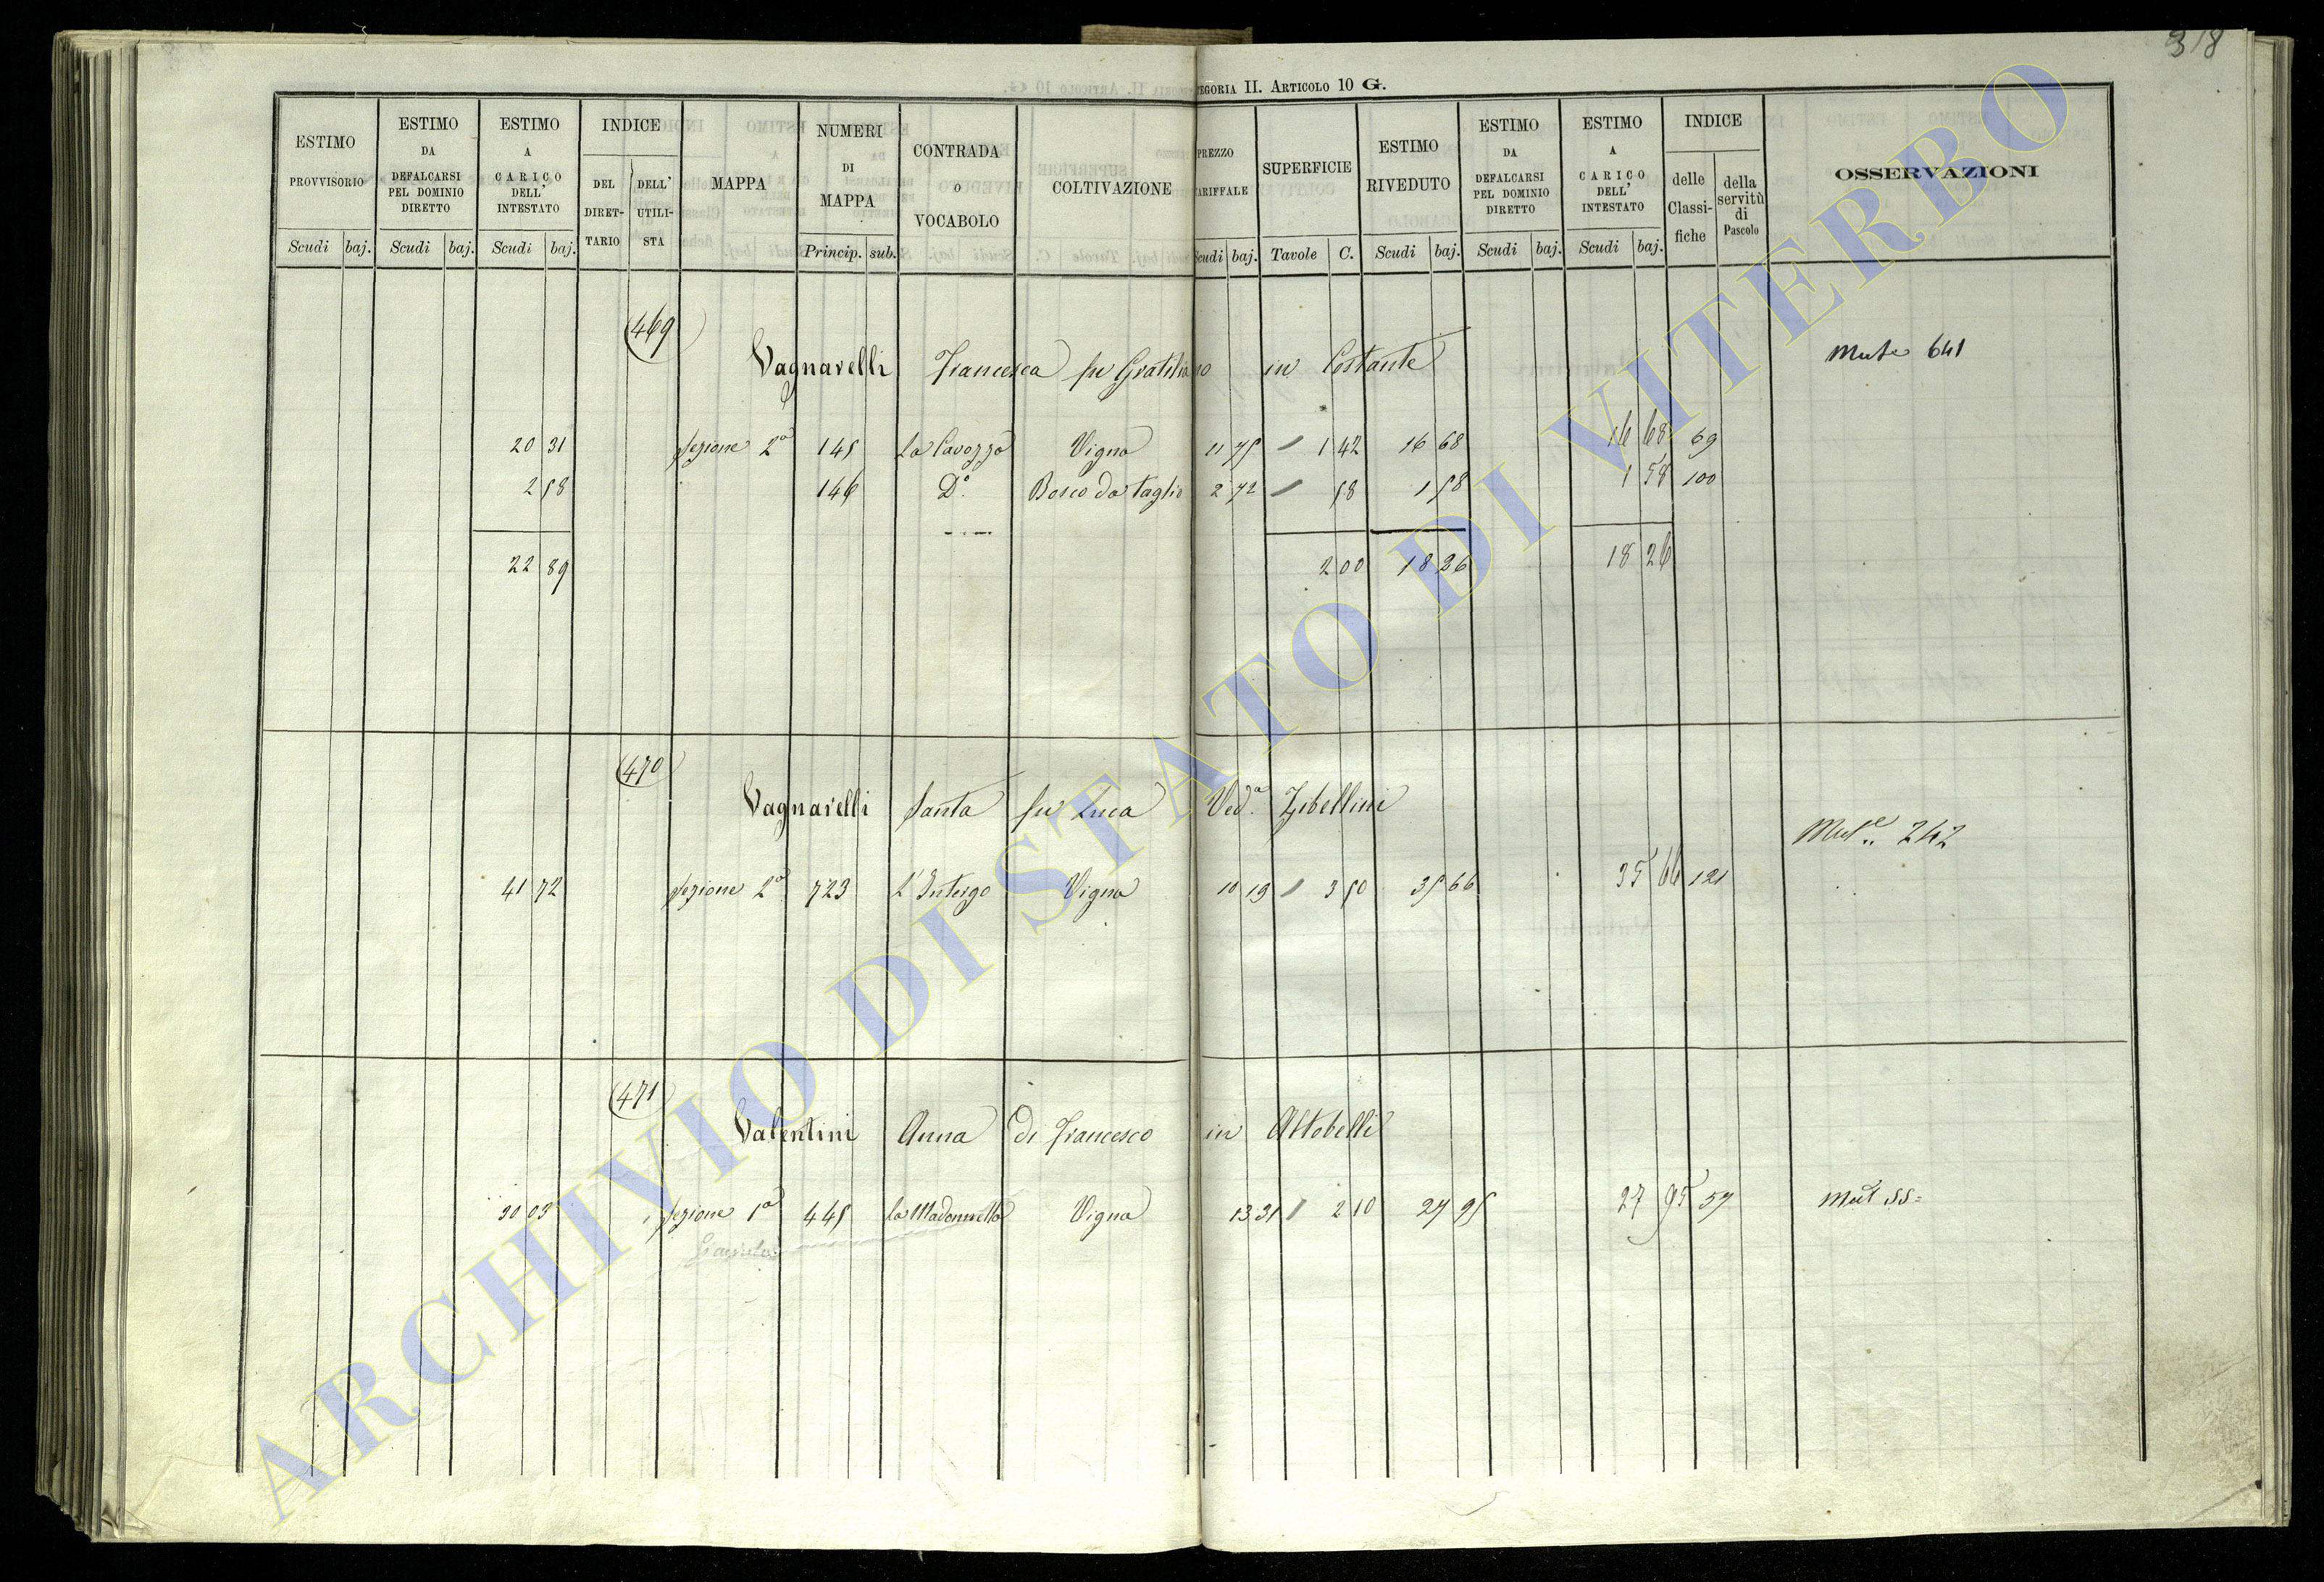 318
TEGORIA II. ARTICOLO 10 G.
ESTIMO PROVVISORIO Scudi baj.
ESTIMO DA DEFALCARSI PEL DOMINIO DIRETTO Scudi baj.
ESTIMO A CARICO DELL' INTESTATO Scudi baj.
INDICE DEL DIRETTARIO DELL' UTILISTA
MAPPA
NUMERI DI MAPPA Princip. sub.
CONTRADA o VOCABOLO
COLTIVAZIONE
PREZZO TARIFFALE Scudi baj.
SUPERFICIE Tavole C.
ESTIMO RIVEDUTO Scudi baj.
ESTIMO DA DEFALCARSI PEL DOMINIO DIRETTO Scudi baj.
ESTIMO A CARICO DELL' INTESTATO Scudi baj.
INDICE delle Classifiche della servitù di Pascolo
OSSERVAZIONI
469
Vagnarelli Francesca fu Gratiliano in Costante Mut.e 641
20 31 Sezione 2a 145 La Cavozza Vigna 11 75 1 42 16 68 16 68 69
2 58 146 D.o Bosco da taglio 2 72 58 1 58 1 58 100
22 89 2 00 18 26 18 26
470
Vagnarelli Santa fu Luca Ved.a Zibellini
Mut.e 242
41 72 Sezione 2a 723 Vigna 10 19 3 50 35 66 35 66 121
471
Valentini Anna di Francesco in Altobelli
30 03 Sezione 1a 445 La Madonnella Vigna 13 31 2 10 27 95 27 95 57 Mut 55=
ARCHIVIO DI STATO DI VITERBO